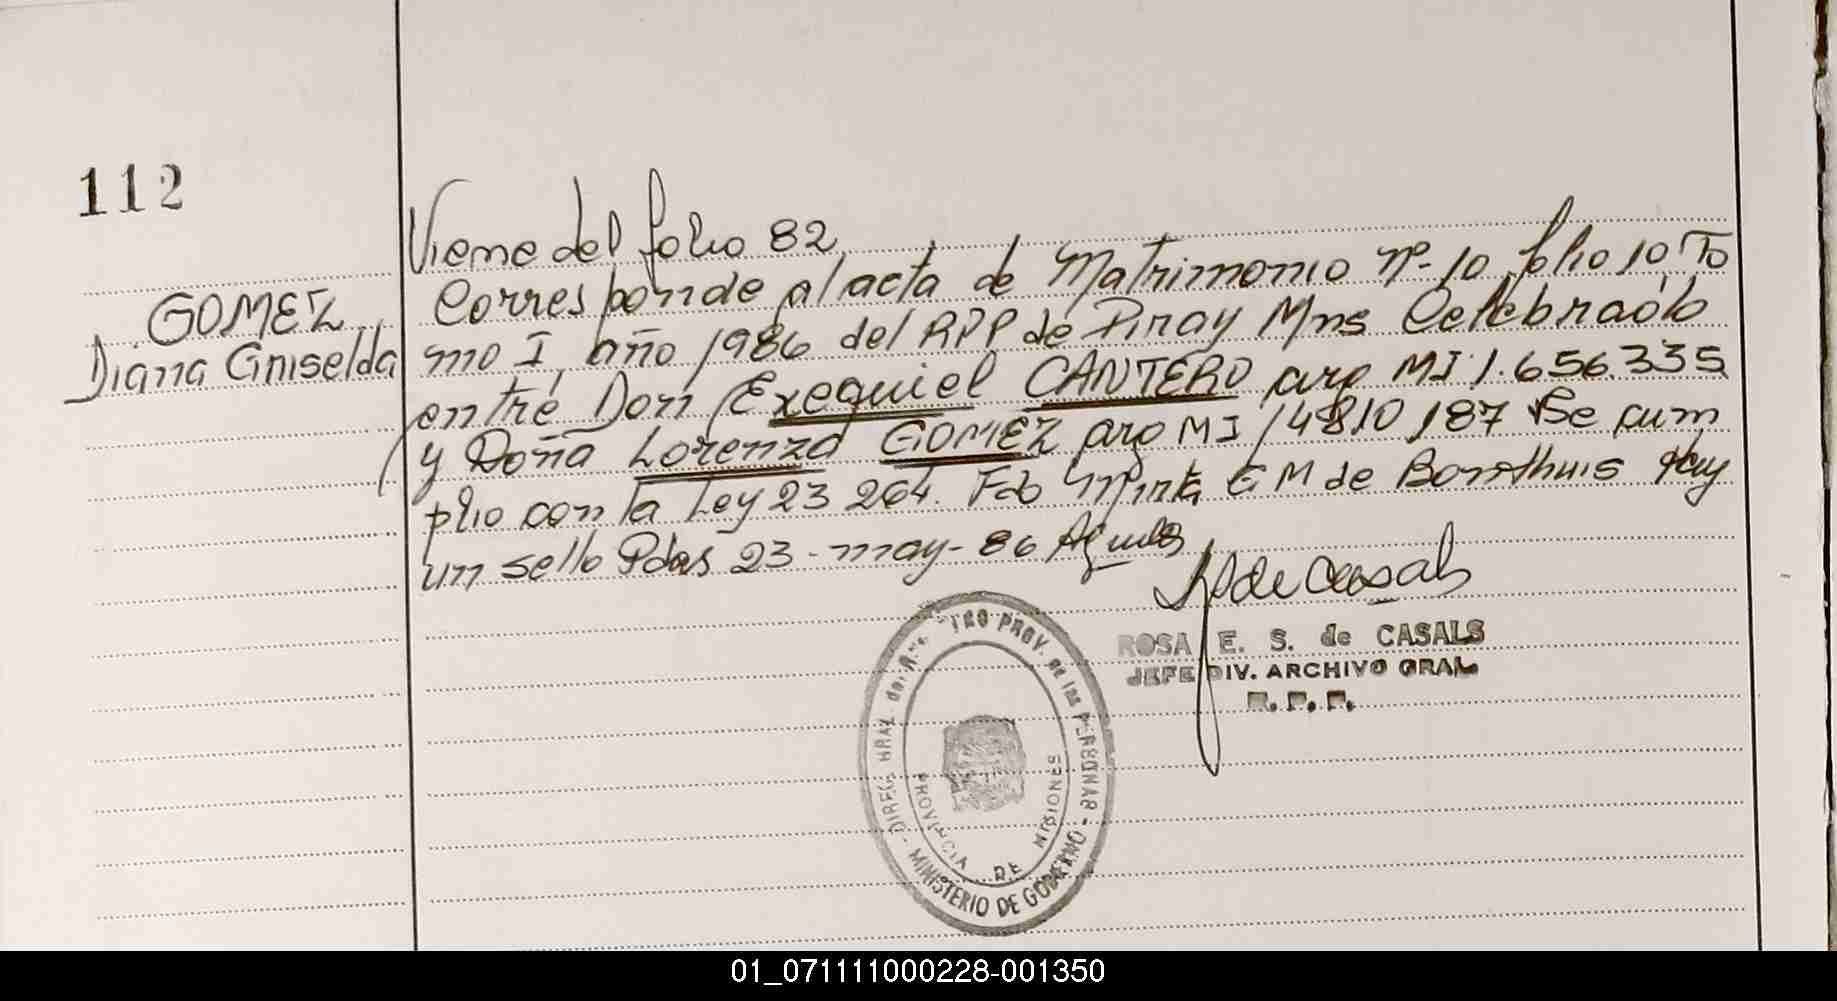 112
Viene del folio 82
GOMEZ
Diana Griselda
Corresponde al acta de Matrimonio nº 10 folio 10 To
mo I, año 1986 del RPP de Piray Mns Celebrado
entre Don Exequiel CANTERO arg MI 1.656.335
y Doña Lorenza GOMEZ arg MI 14810187 Se cum
plio con la Ley 23 264. Fdo Mirta E M de Hay
un sello Pdas 23-may-86
ROSA E. S. de CASALS
JEFE DIV. ARCHIVO GRAL
R. P. P.
PROV. de las PERSONAS - MINISTERIO DE GOBIERNO
PROVINCIA DE MISIONES
01_071111000228-001350